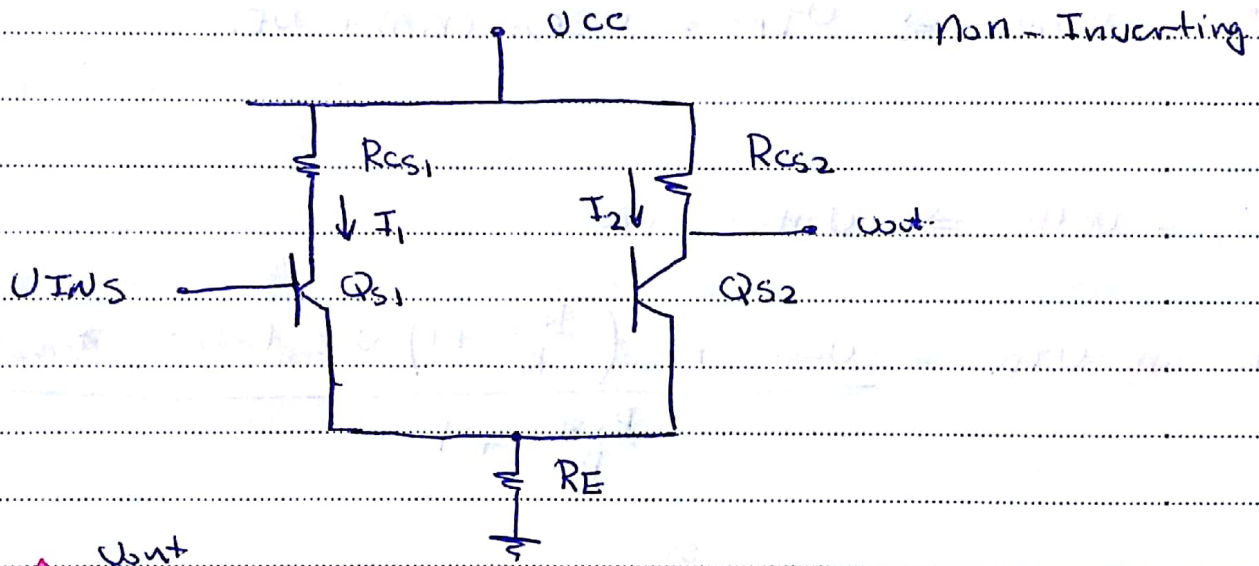 VCC
Non-Inverting
RCS1
RCS2
I1
I2
Vout
VINS
QS1
QS2
RE
Vout